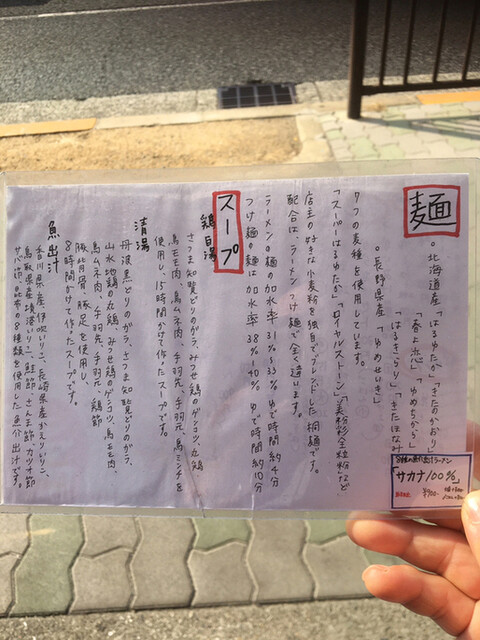 麺
。北海道産「はるゆたか」「きたのかおり」
「春よ恋」「ゆめちから」
「はるきらり」「きたほなみ」
。長野県産「ゆめせいき」
7つの麦種を使用しています。
「スーパーはるゆたか」「ロイヤルストーン」「美粉彩全粒粉」など
店主の好きな小麦粉を独自でブレンドした桐麺です。
配合は、ラーメン つけ麺で全く違います。
ラーメンの麺の加水率 31%〜33% ゆで時間約4分
つけ麺の麺は加水率 38%〜40% ゆで時間約10分
スープ
鶏白湯
さつま知覧どりのガラ、みつせ鶏のゲンコツ、丸鶏
鳥モモ肉、鳥ムネ肉、手羽元、手羽先、鳥ミンチを
使用し、15時間かけて作ったスープです。
清湯
丹波黒どりのガラ、さつま知覧どりのガラ、
山水地鶏の丸鶏、みつせ鶏のゲンコツ、鳥モモ肉、
鳥ムネ肉、手羽先、手羽元、鶏節
豚背骨、豚足を使用し
8時間かけて作ったスープです。
魚出汁
香川県産伊吹いりこ、長崎県産かえりいりこ、
鳥取県産境港いりこ、鮭節、さんま節、カツオ節
サバ節、昆布の8種類を使用した魚介出汁です。
「サカナ100%」
¥900-